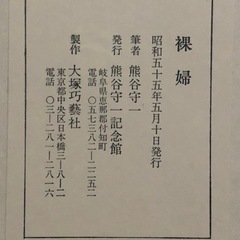 裸婦
昭和五十五年五月十日発行
筆者 熊谷守一
発行 熊谷守一記念館
岐阜県恵那郡付知町
電話 〇五七三八二―二二五二
製作 大塚巧藝社
東京都中央区日本橋三―八―二
電話 〇三―二八一―二八一六